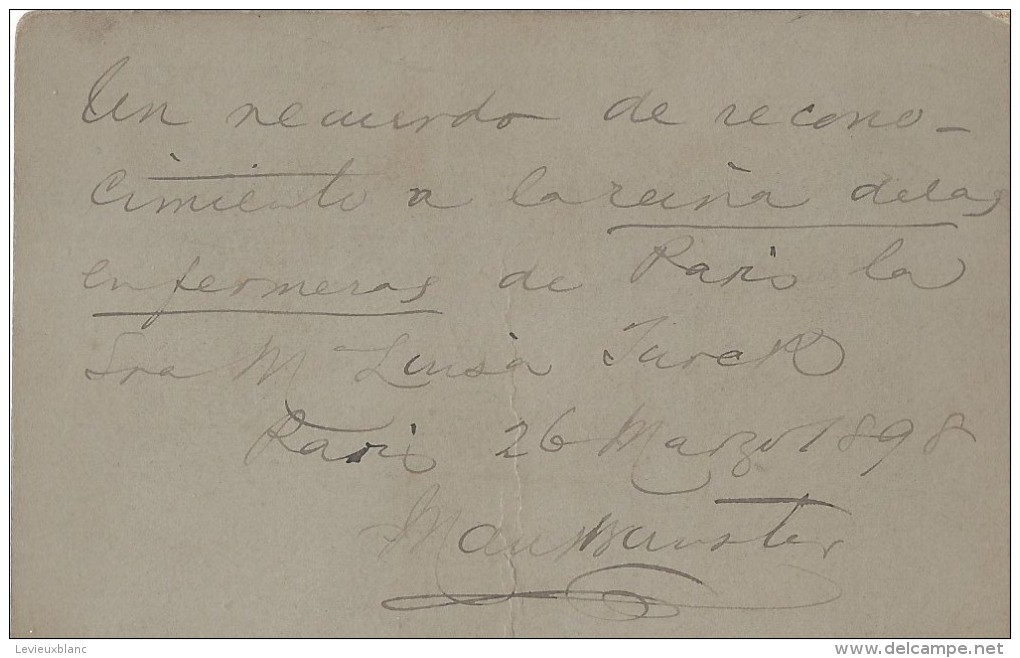 Un recuerdo de recono-
cimiento a la reina de las
enfermeras de Paris la
Sra M Luisa Turck
Paris 26 Marzo 1898
Levieuxblanc
delcampe.net